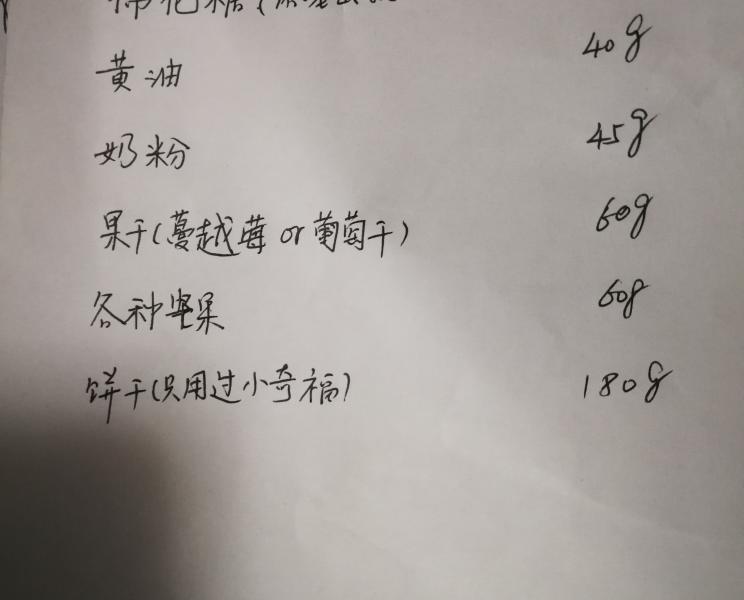 棉花糖(
黄油 40g
奶粉 45g
果干(蔓越莓or葡萄干) 60g
各种坚果 60g
饼干(只用过小奇福) 180g